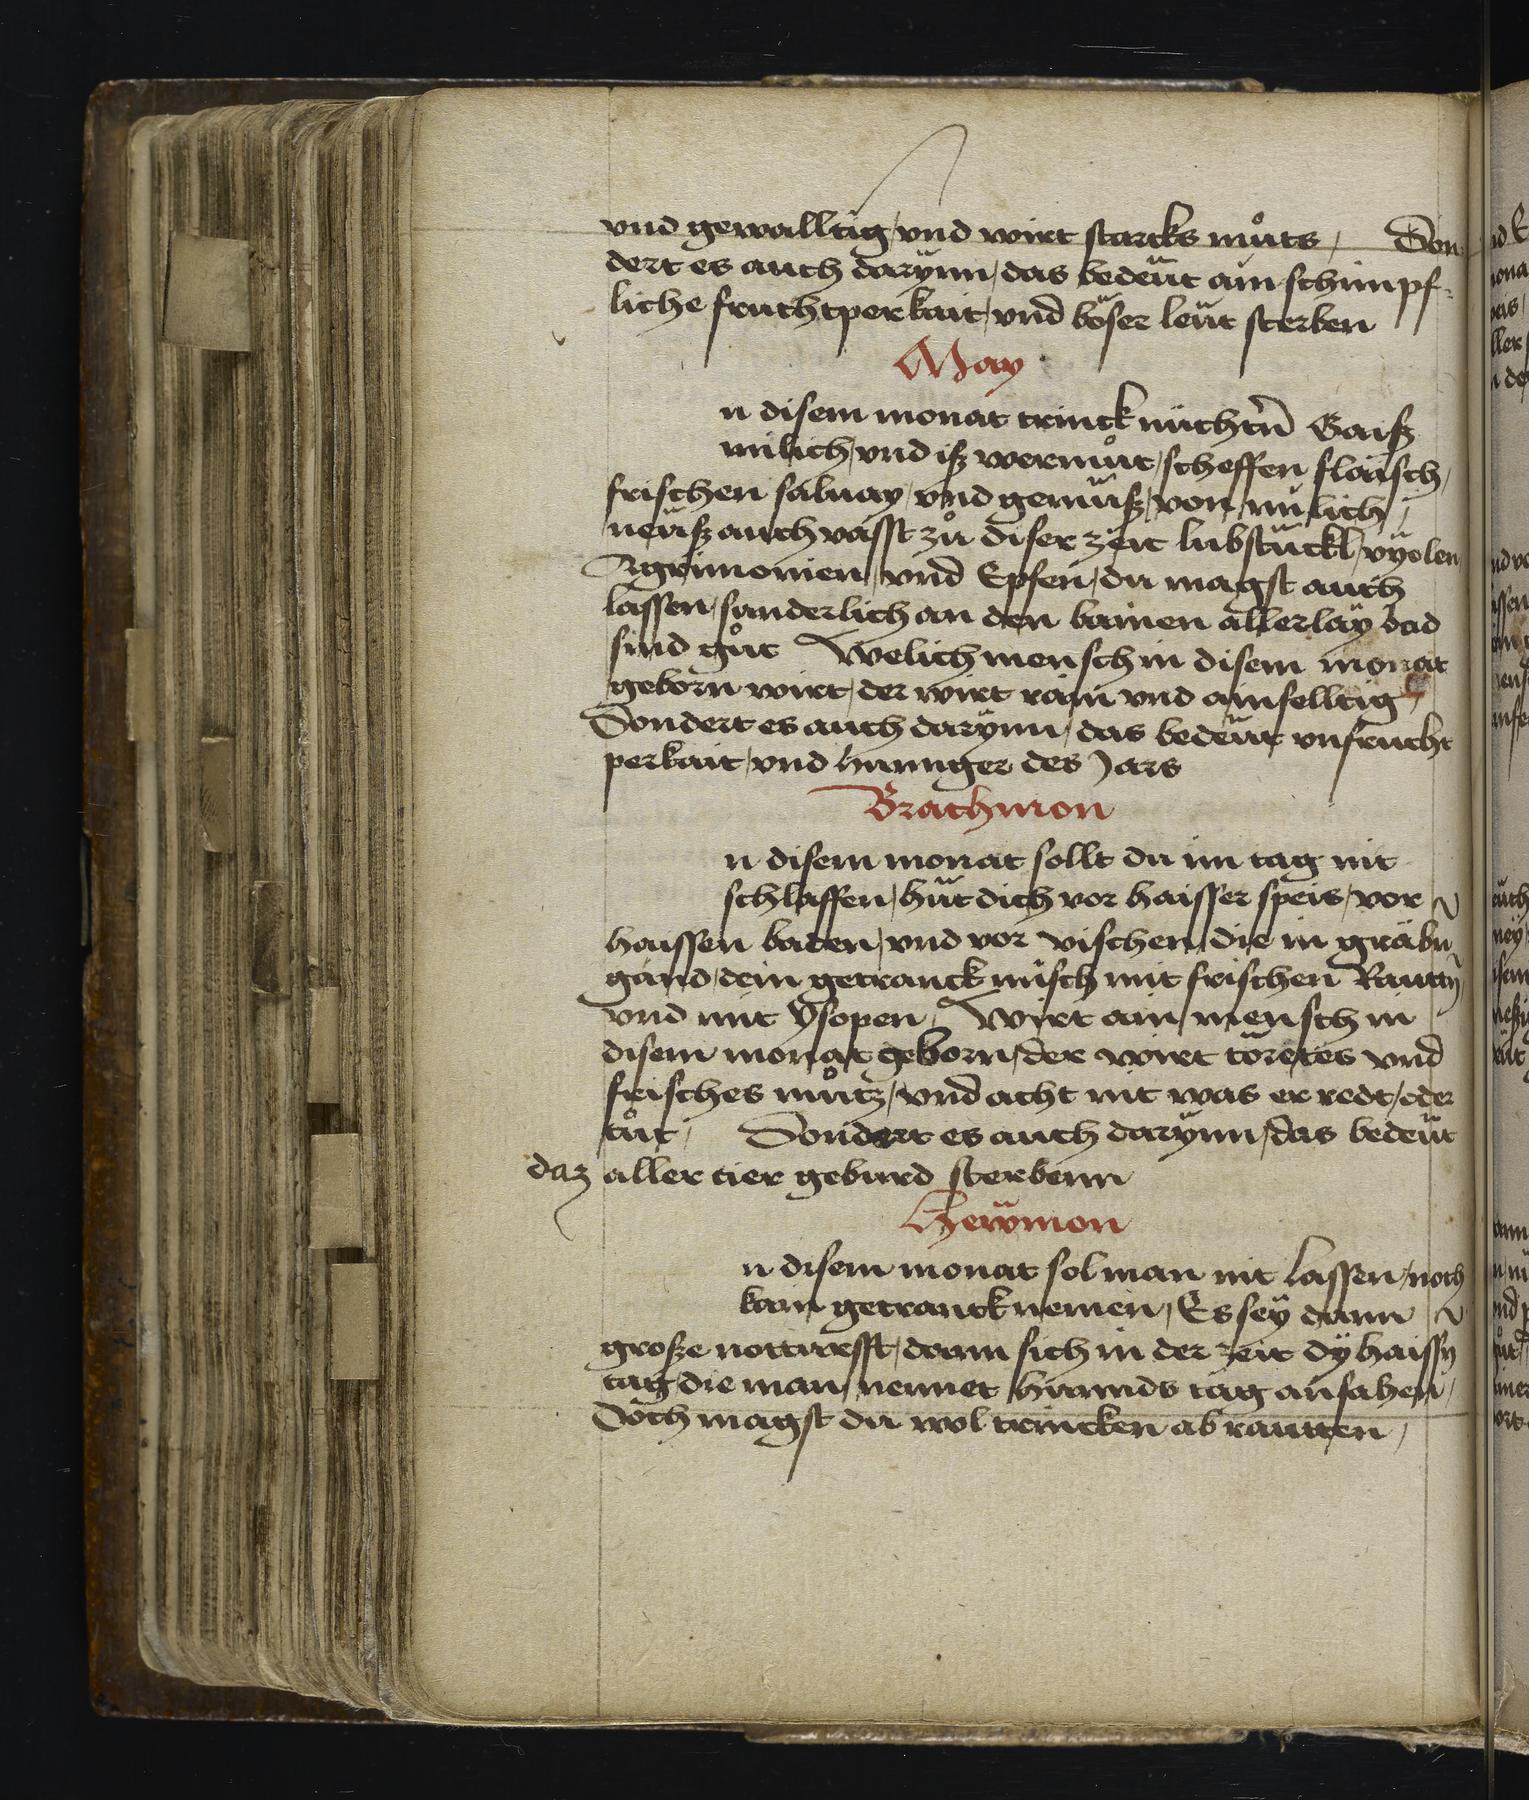 vnd gewalltig / vnd wirt starcks můts / Don
dert es auch darÿnn / das bedeüt ain schimpf-
liche fruchtperkait / vnd böser leüt sterben
May
n disem monat trinck nüchtn̄ Gaiß
milich / vnd iß wermůt / scheffen flaisch /
frischen saluay / vnd gemüß / von milich /
neüß auch vásst zů diser zeit lubstückl / vÿolen
Agrimonien / vnd Epfen / du magst auch
lassen / sunderlich an den bainen allerlaÿ bad
sind gůt Welich mensch in disem monat
geborn wirt / der wirt rain vnd ainfelltig /
Dondert es auch darÿnn / das bedeüt vnfrucht
perkait / vnd hunnger des Jars
Brachmon
n disem monat sollt du im tag nit
schlaffen / hüt dich vor haisser speis / vor
haissen baden / vnd vor vischen / die in gräbn
gánd / dein getranck misch mit frischen Rautn̄
vnd mit ÿsopen / Wirt ain mensch in
disem monat geborn / der wirt töretes vnd
frisches můtz / vnd acht nit was er redt / oder
tůt / Dondert es auch darÿnn / das bedeüt
daz aller tier geburd sterbenn
Heẅmon
n disem monat sol man nit lassen / noch
kain getranck nemen / Es seÿ dann
große notturfft / dann sich in der zeit dÿ haissn̄
tag die man nennet hunnds tag anfahen /
Doch magst du wol trincken ab rautten /